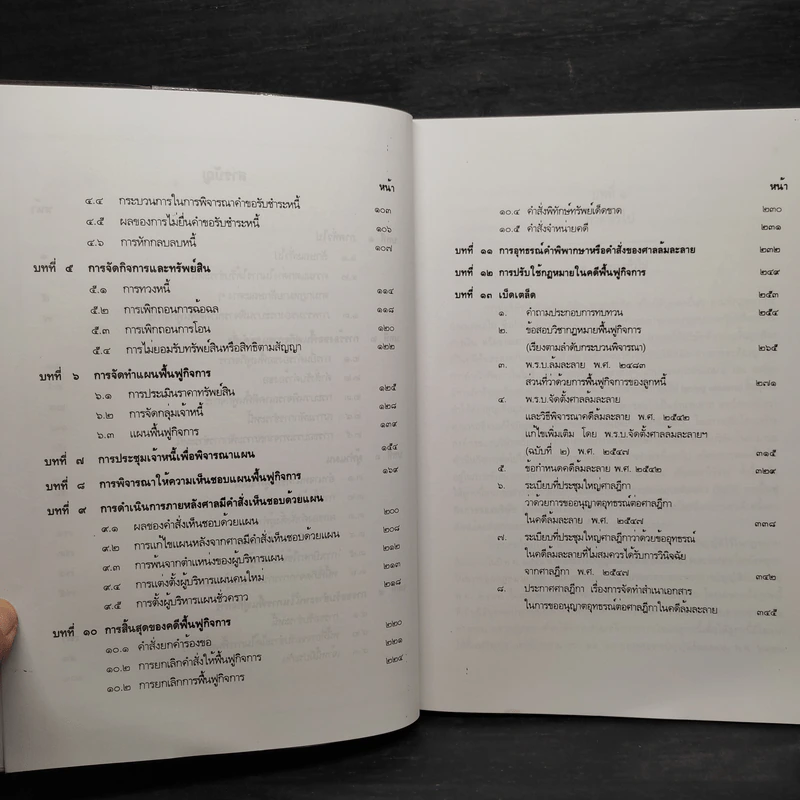 หน้า
๔.๔ กระบวนการในการพิจารณาคำขอรับชำระหนี้ ๑๐๓
๔.๕ ผลของการไม่ยื่นคำขอรับชำระหนี้ ๑๐๖
๔.๖ การหักกลบลบหนี้ ๑๐๗
บทที่ ๕ การจัดกิจการและทรัพย์สิน
๕.๑ การทวงหนี้ ๑๑๔
๕.๒ การเพิกถอนการฉ้อฉล ๑๑๘
๕.๓ การเพิกถอนการโอน ๑๒๐
๕.๔ การไม่ยอมรับทรัพย์สินหรือสิทธิตามสัญญา ๑๒๒
บทที่ ๖ การจัดทำแผนฟื้นฟูกิจการ
๖.๑ การประเมินราคาทรัพย์สิน ๑๒๕
๖.๒ การจัดกลุ่มเจ้าหนี้ ๑๒๘
๖.๓ แผนฟื้นฟูกิจการ ๑๓๙
บทที่ ๗ การประชุมเจ้าหนี้เพื่อพิจารณาแผน ๑๕๔
บทที่ ๘ การพิจารณาให้ความเห็นชอบแผนฟื้นฟูกิจการ ๑๖๙
บทที่ ๙ การดำเนินการภายหลังศาลมีคำสั่งเห็นชอบด้วยแผน
๙.๑ ผลของคำสั่งเห็นชอบด้วยแผน ๒๐๐
๙.๒ การแก้ไขแผนหลังจากศาลมีคำสั่งเห็นชอบด้วยแผน ๒๐๘
๙.๓ การพ้นจากตำแหน่งของผู้บริหารแผน ๒๑๒
๙.๔ การแต่งตั้งผู้บริหารแผนคนใหม่ ๒๑๓
๙.๕ การตั้งผู้บริหารแผนชั่วคราว ๒๑๘
บทที่ ๑๐ การสิ้นสุดของคดีฟื้นฟูกิจการ
๑๐.๑ คำสั่งยกคำร้องขอ ๒๒๐
๑๐.๒ การยกเลิกคำสั่งให้ฟื้นฟูกิจการ ๒๒๑
๑๐.๒ การยกเลิกการฟื้นฟูกิจการ ๒๒๔
หน้า
๑๐.๔ คำสั่งพิทักษ์ทรัพย์เด็ดขาด ๒๓๐
๑๐.๕ คำสั่งจำหน่ายคดี ๒๓๑
บทที่ ๑๑ การอุทธรณ์คำพิพากษาหรือคำสั่งของศาลล้มละลาย ๒๓๒
บทที่ ๑๒ การปรับใช้กฎหมายในคดีฟื้นฟูกิจการ ๒๔๙
บทที่ ๑๓ เบ็ดเตล็ด ๒๕๓
๑. คำถามประกอบการทบทวน ๒๕๔
๒. ข้อสอบวิชากฎหมายฟื้นฟูกิจการ
(เรียงตามลำดับกระบวนพิจารณา) ๒๖๕
๓. พ.ร.บ.ล้มละลาย พ.ศ. ๒๔๘๓
ส่วนที่ว่าด้วยการฟื้นฟูกิจการของลูกหนี้ ๒๗๑
๔. พ.ร.บ.จัดตั้งศาลล้มละลาย
และวิธีพิจารณาคดีล้มละลาย พ.ศ. ๒๕๔๒
แก้ไขเพิ่มเติม โดย พ.ร.บ.จัดตั้งศาลล้มละลายฯ
(ฉบับที่ ๒) พ.ศ. ๒๕๔๗ ๓๑๕
๕. ข้อกำหนดคดีล้มละลาย พ.ศ. ๒๕๔๒ ๓๒๙
๖. ระเบียบที่ประชุมใหญ่ศาลฎีกา
ว่าด้วยการขออนุญาตอุทธรณ์ต่อศาลฎีกา
ในคดีล้มละลาย พ.ศ. ๒๕๔๗ ๓๓๘
๗. ระเบียบที่ประชุมใหญ่ศาลฎีกาว่าด้วยข้ออุทธรณ์
ในคดีล้มละลายที่ไม่สมควรได้รับการวินิจฉัย
จากศาลฎีกา พ.ศ. ๒๕๔๗ ๓๔๒
๘. ประกาศศาลฎีกา เรื่องการจัดทำสำเนาเอกสาร
ในการขออนุญาตอุทธรณ์ต่อศาลฎีกาในคดีล้มละลาย ๓๔๕